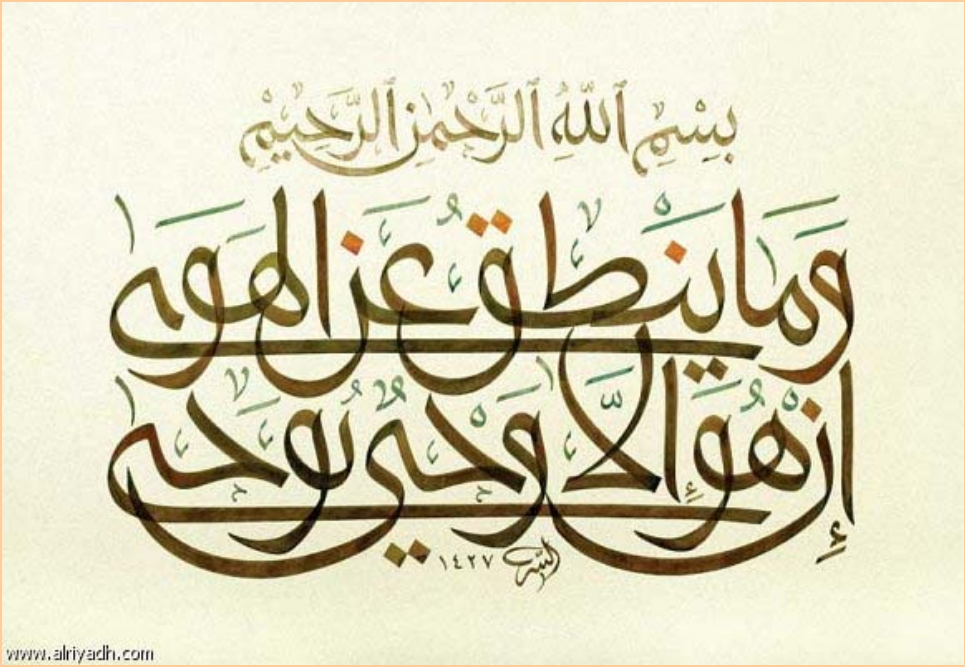 بِسْمِ ٱللَّهِ ٱلرَّحْمَٰنِ ٱلرَّحِيمِ
وَمَا يَنْطِقُ عَنِ الْهَوَىٰ
إِنْ هُوَ إِلَّا وَحْيٌ يُوحَىٰ
١٤٢٧
www.alriyadh.com